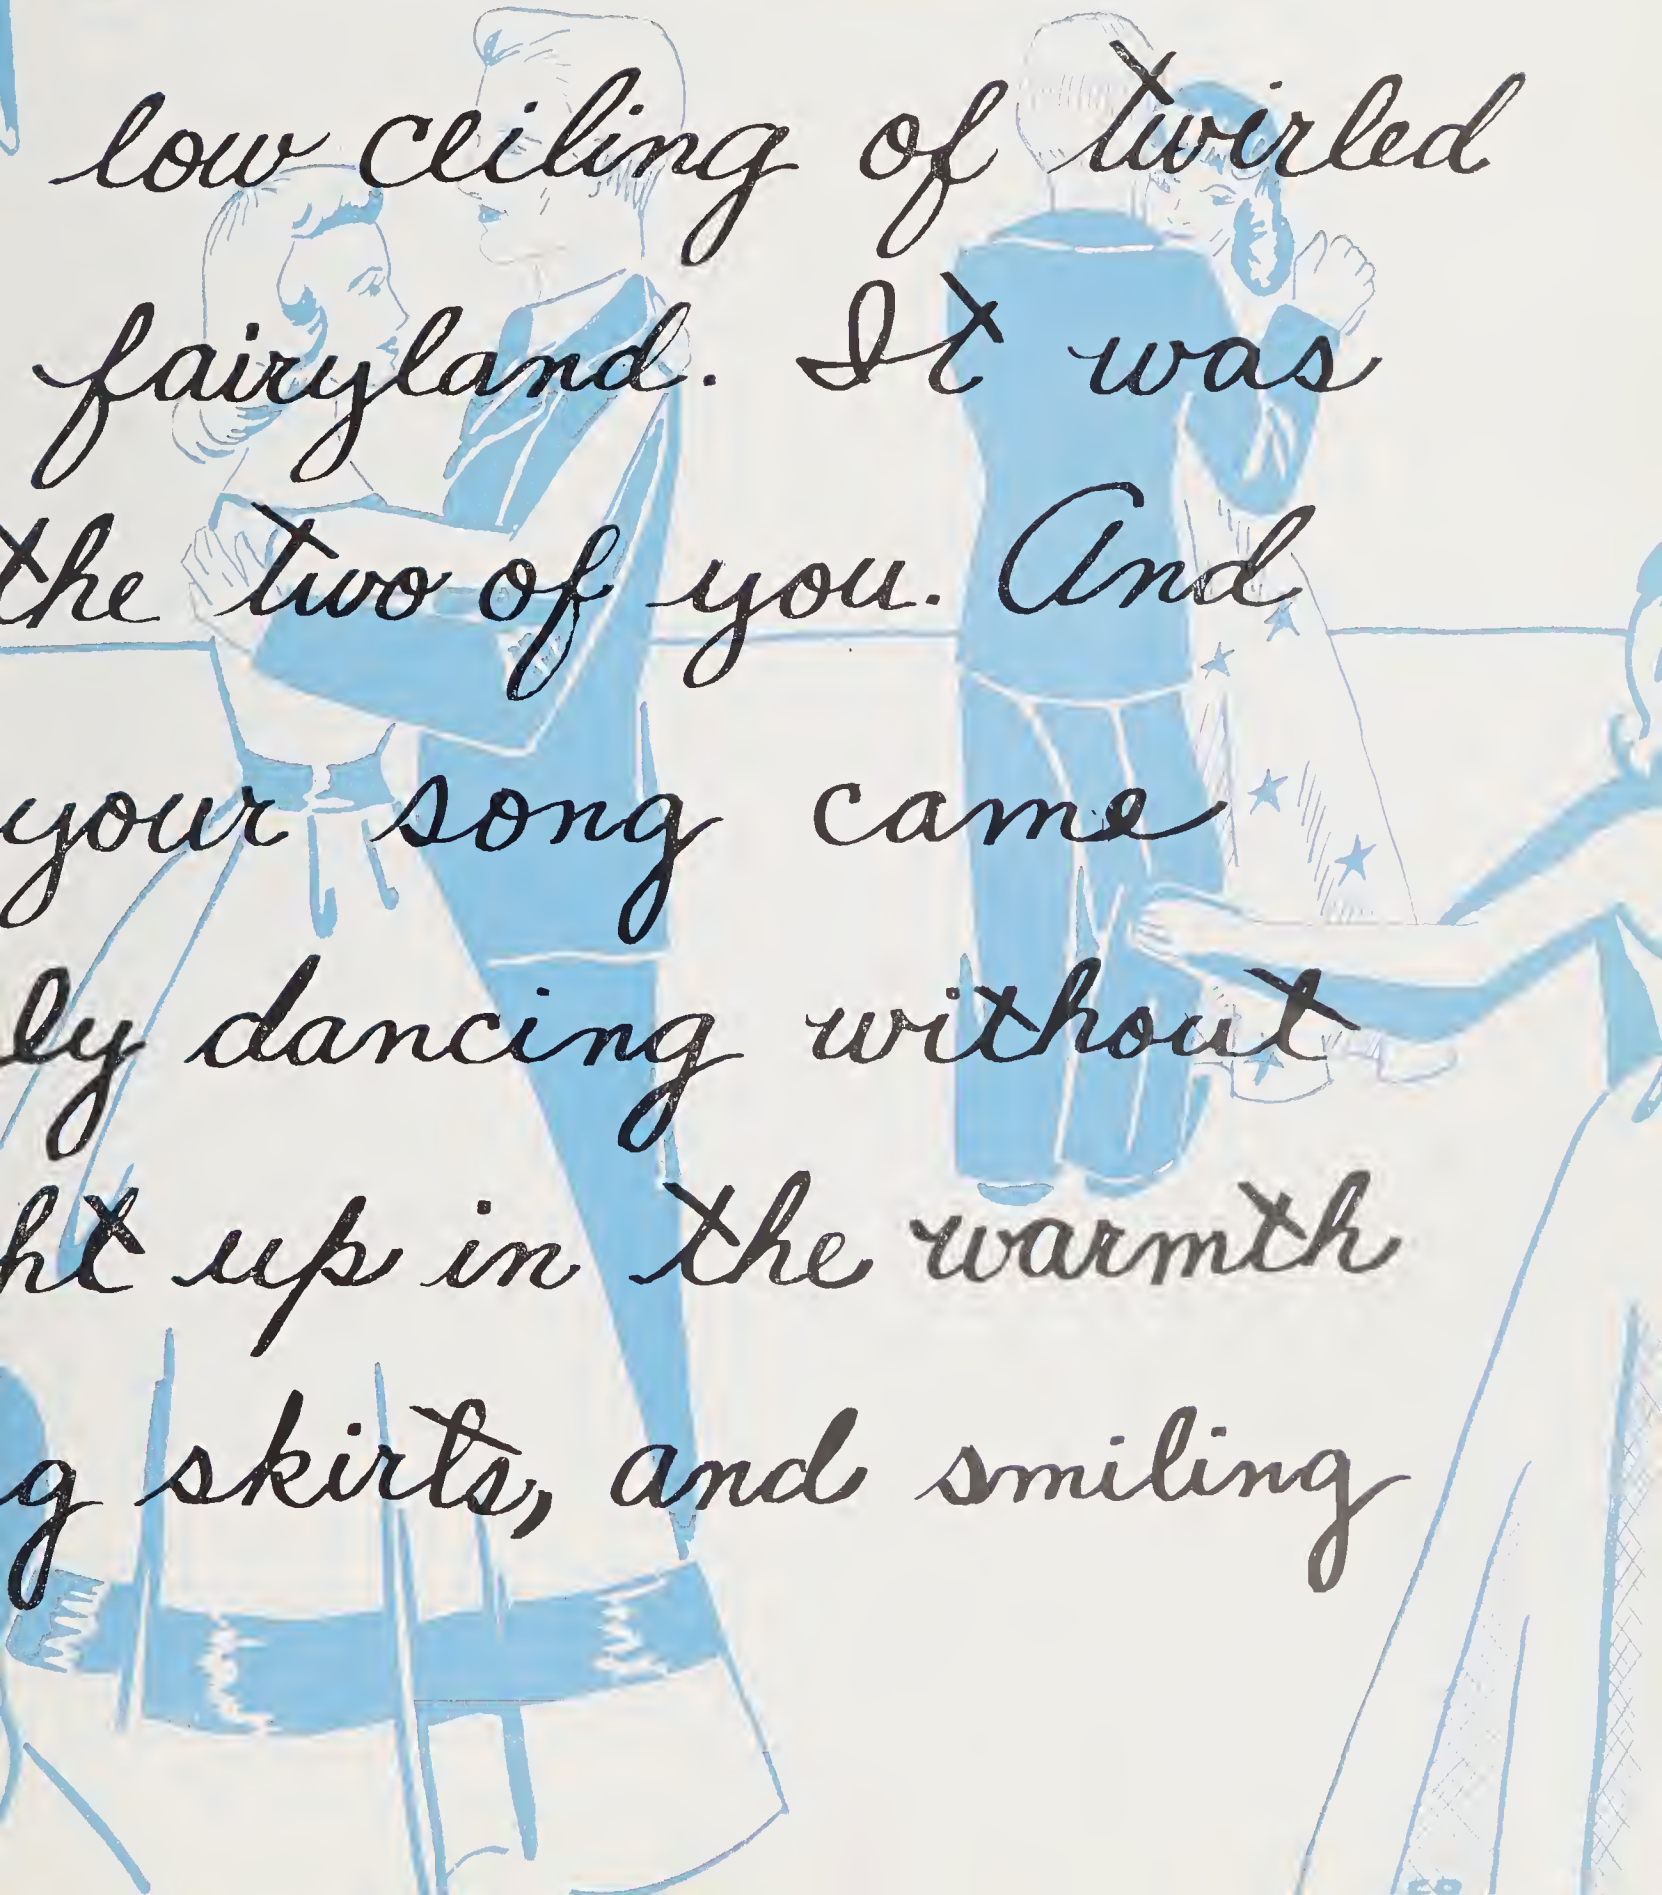 low ceiling of twirled
fairyland. It was
the two of you. And
your song came
ly dancing without
ht up in the warmth
g skirts, and smiling